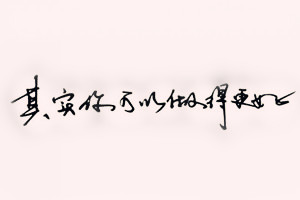 其实你可以做得更好